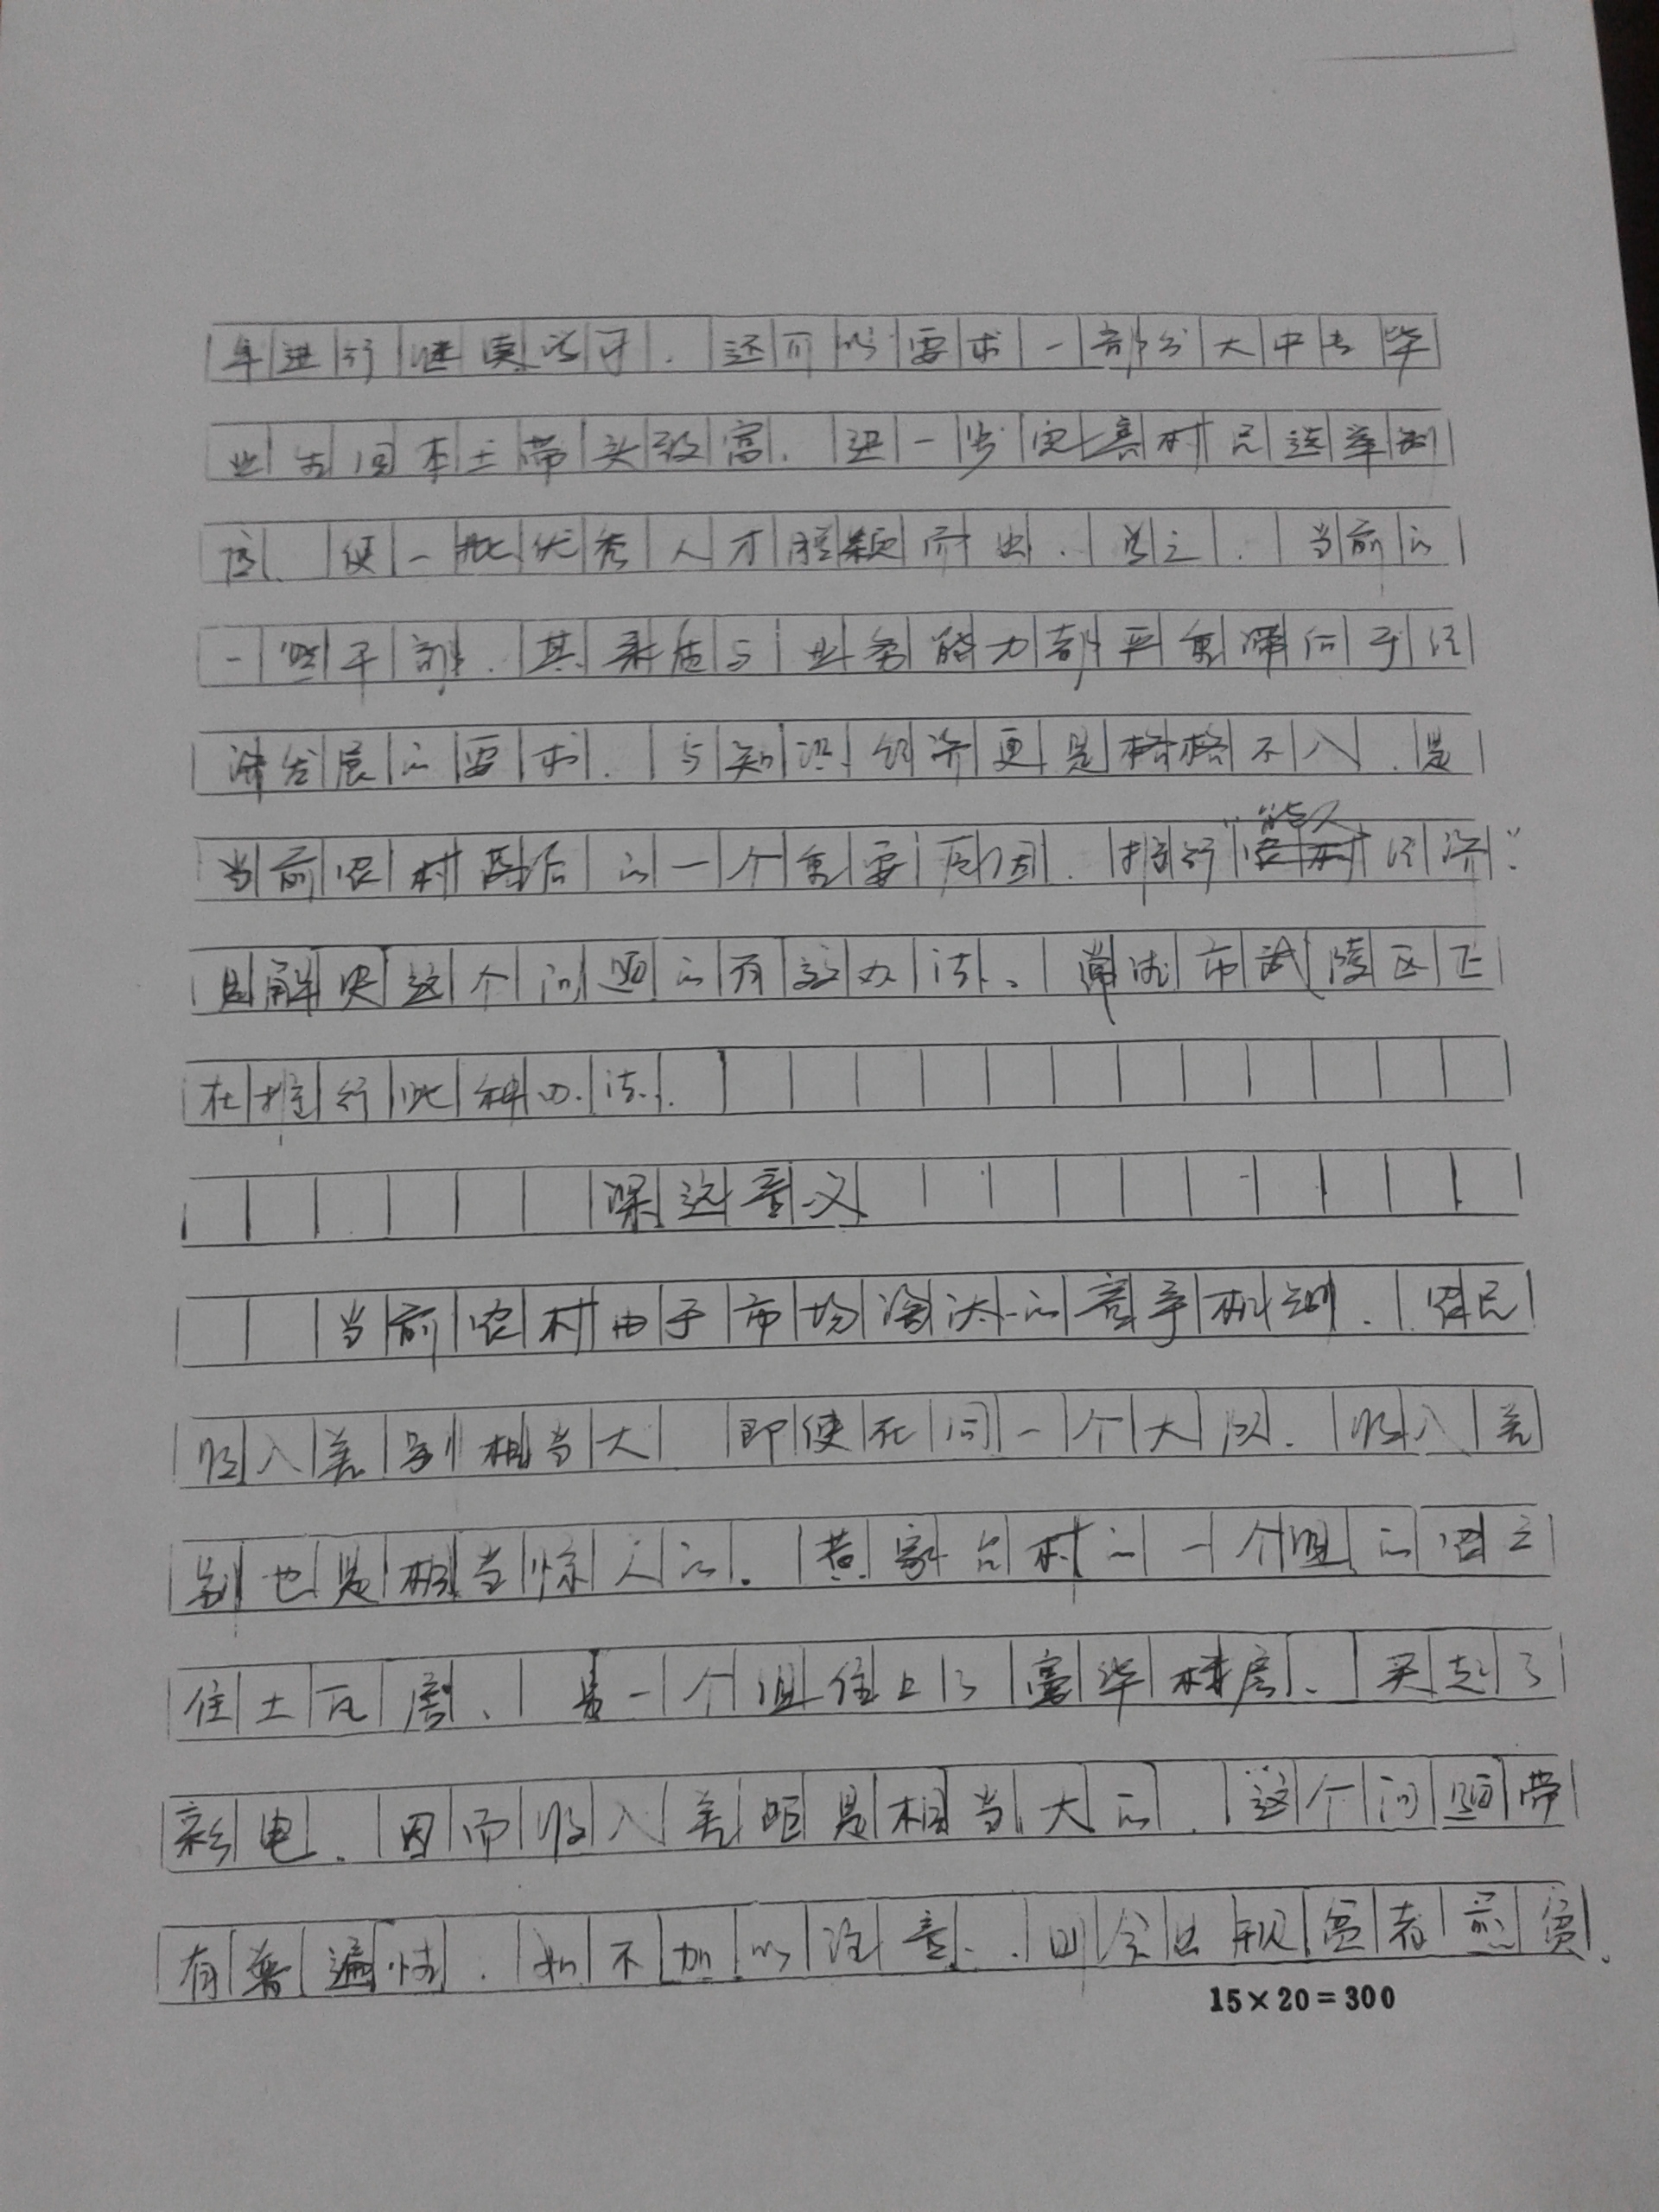 年进行继续治疗，还可以要求一部分大中专毕
业生回本土带头致富，进一步完善村民选举制
度，使一批优秀人才脱颖而出，总之，当前的
一些干部，其素质与业务能力都严重滞后于经
济发展的要求，与知识经济更是格格不入，是
当前农村落后的一个重要原因，推行“能人经济”
是解决这个问题的有效办法。常德市武陵区正
在推行此种办法.
深远意义
当前农村由于市场淘汰的竞争机制，农民
收入差别相当大，即使在同一个大队，收入差
别也是相当惊人的。黄家台村的一个组的
住土瓦房、另一个组住上了豪华楼房、买起了
彩电。因而收入差距是相当大的，这个问题带
有普遍性，如不加以注意，则会出现贫者愈贫，
15×20=300